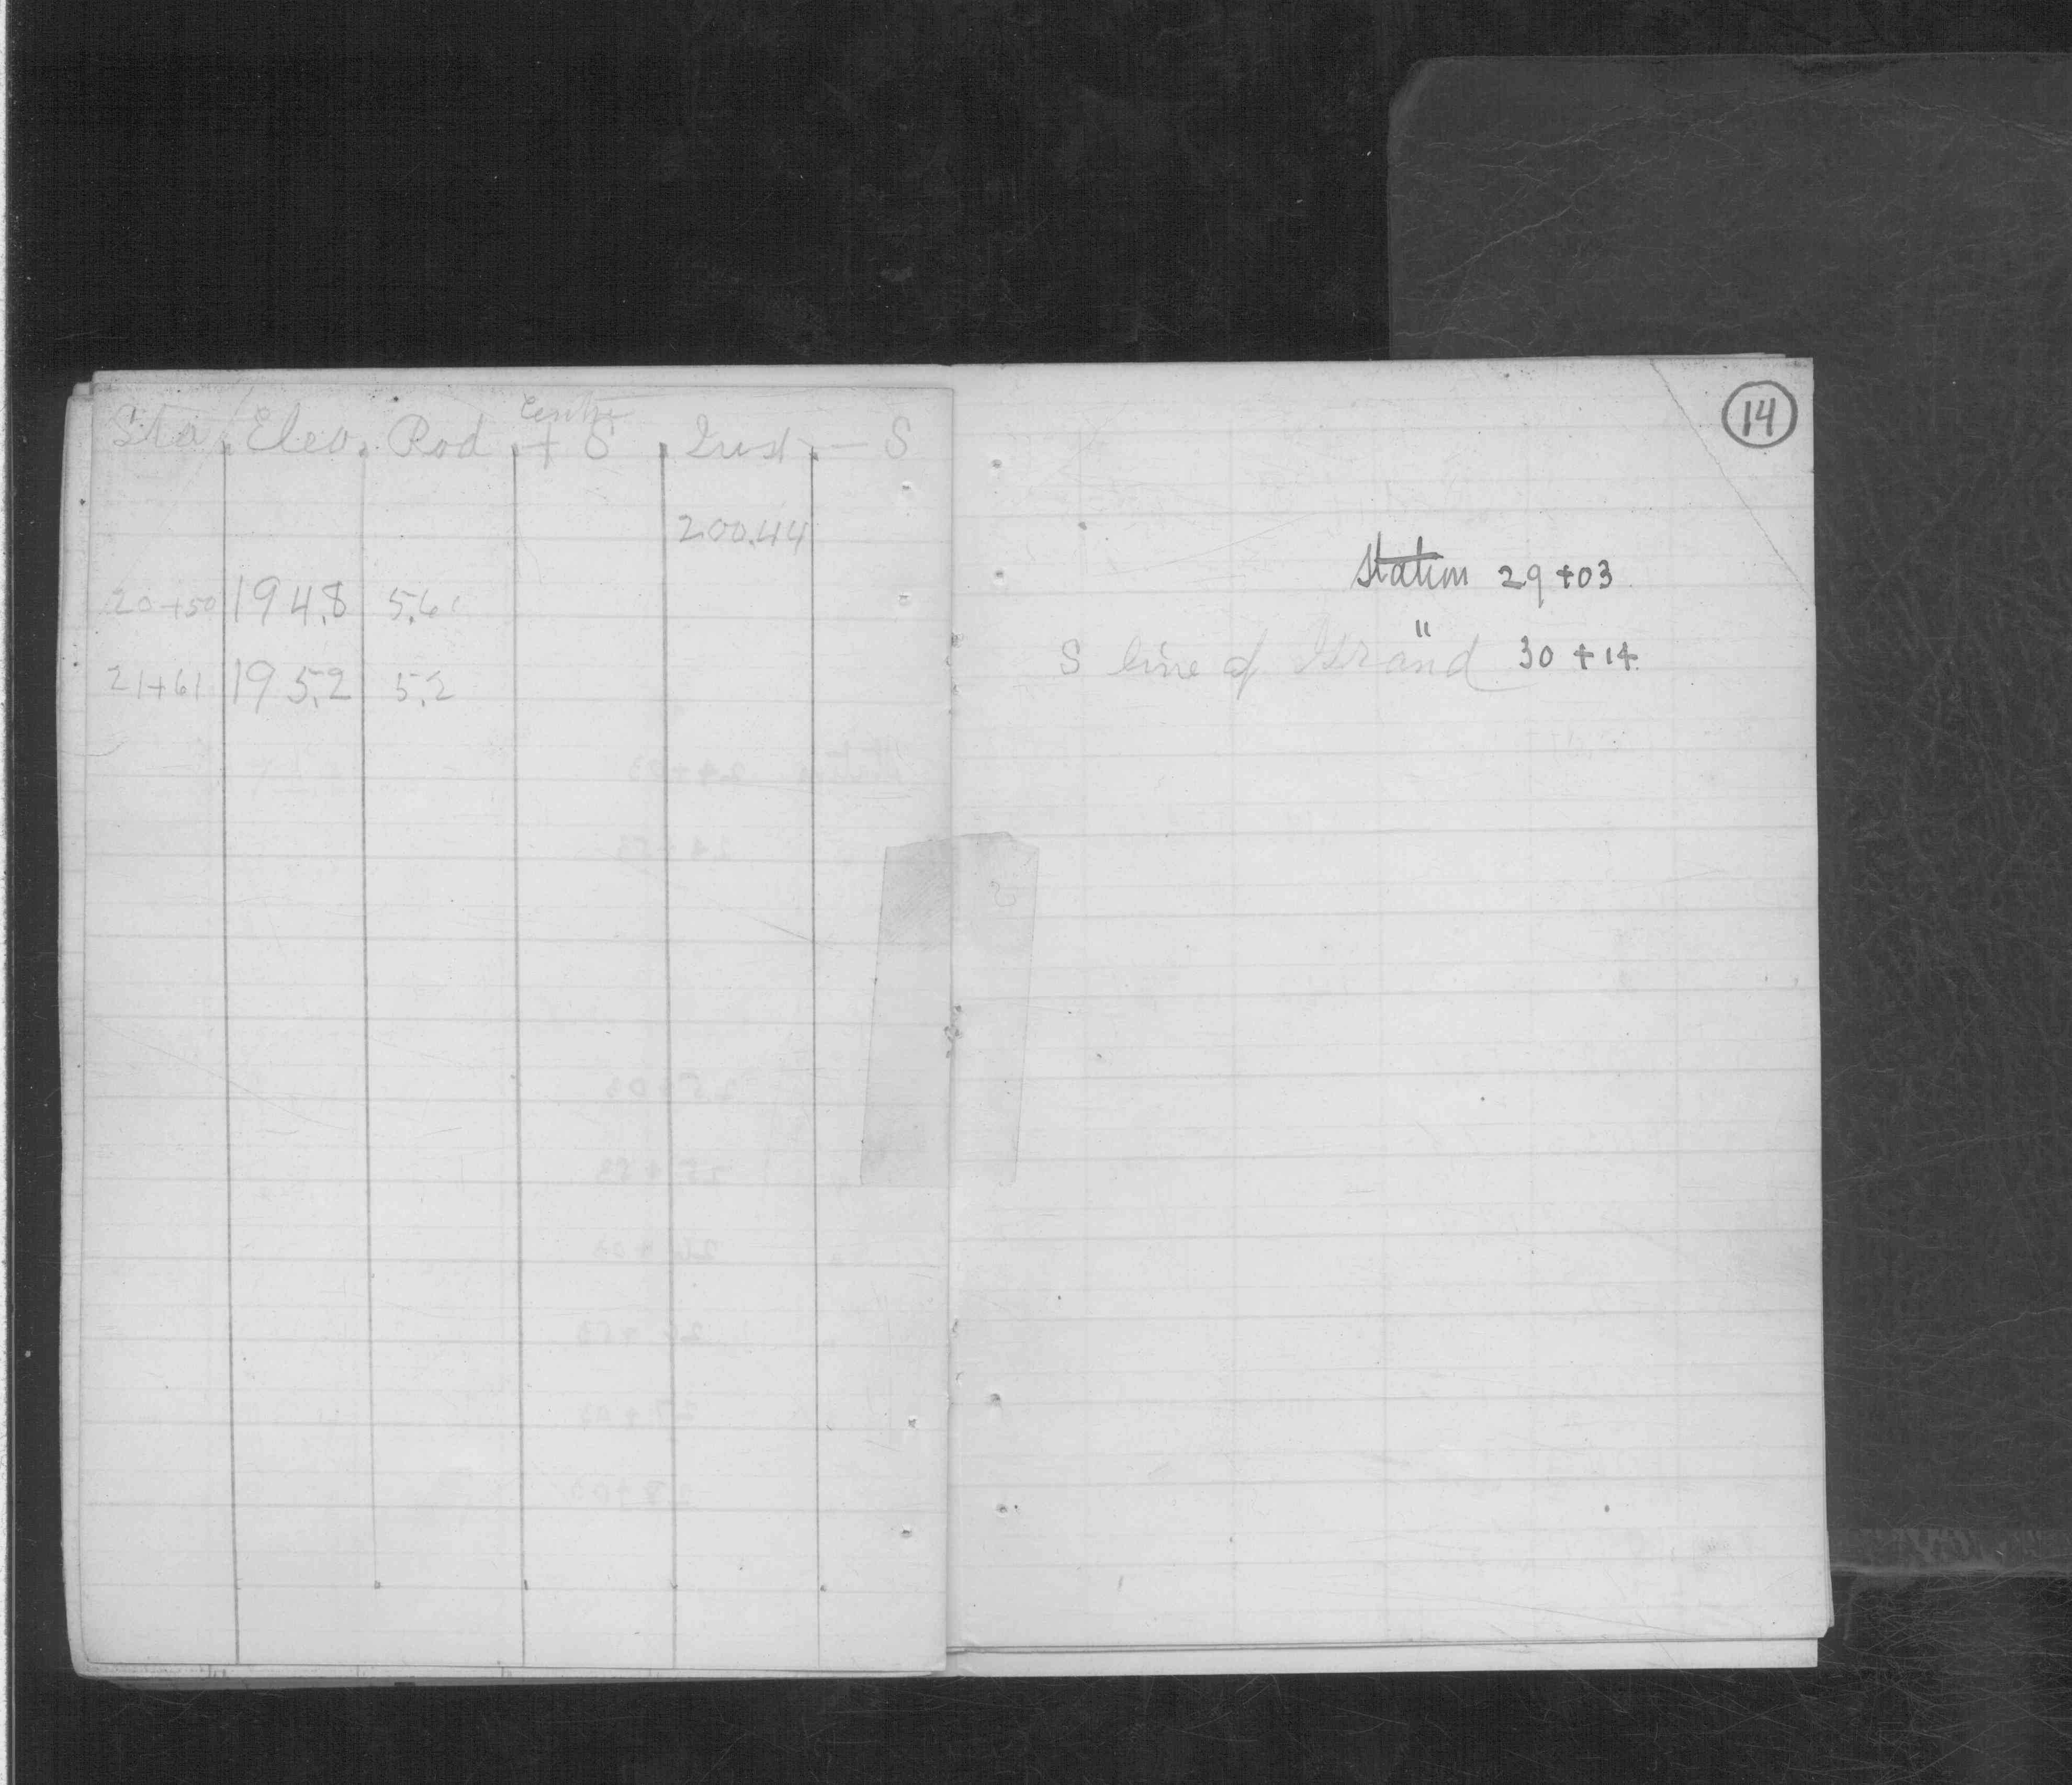 Centre
Sta. Elev. Rod + S Inst. - S
200.44
20+50 194.8 5.6
21+61 195.2 5.2
14
Station 29+03
"
S line of Strand 30+14